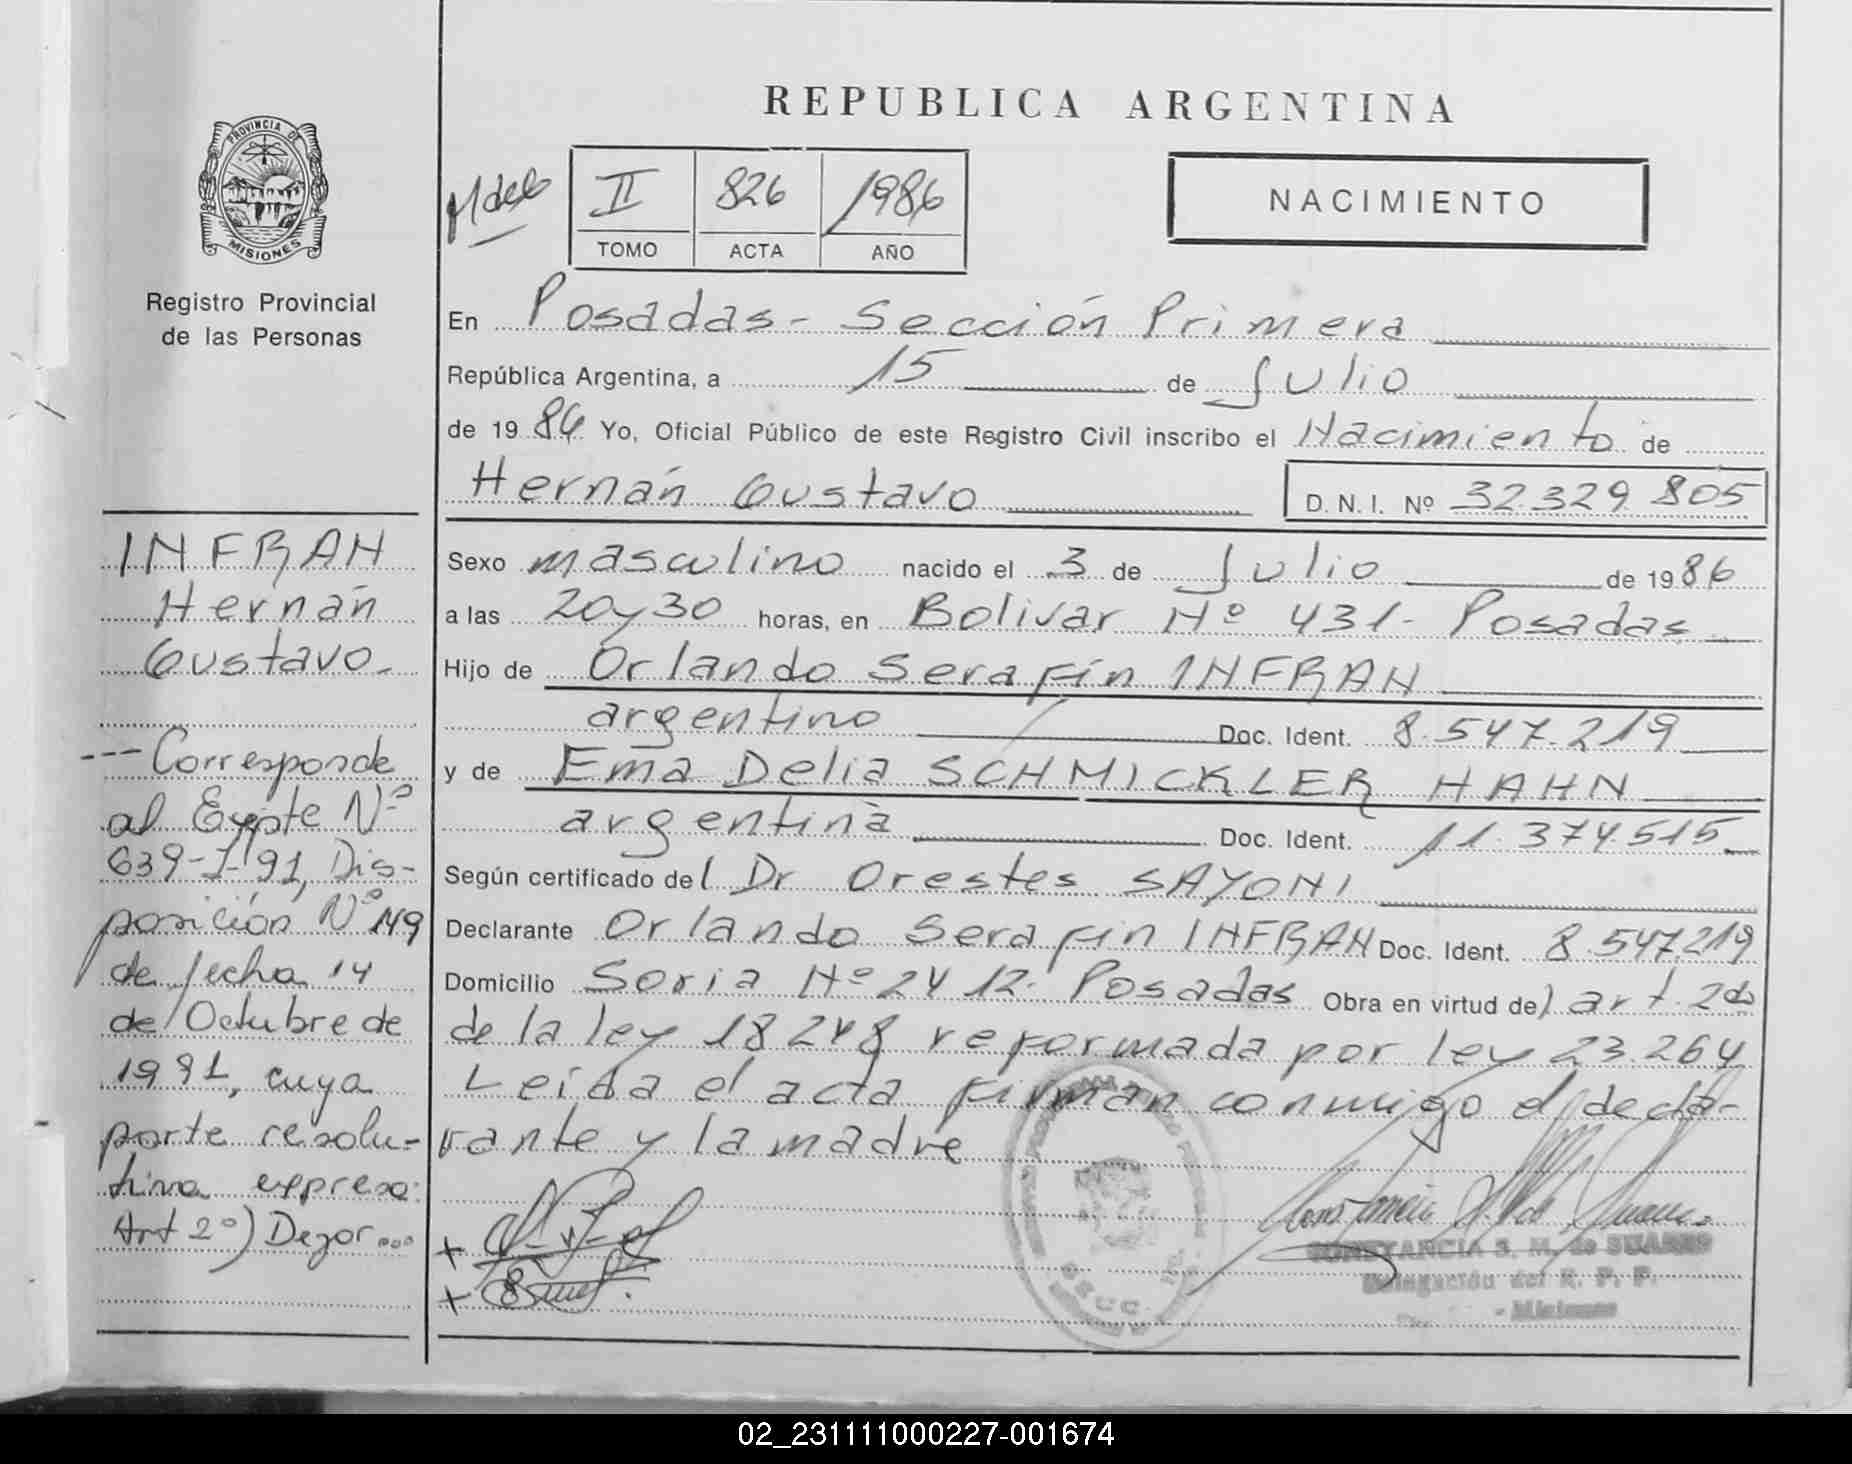 REPUBLICA ARGENTINA
PROVINCIA DE
MISIONES
Registro Provincial
de las Personas
II 826 1986
TOMO ACTA AÑO
NACIMIENTO
En Posadas - Sección Primera
República Argentina, a 15 de Julio
de 1986 Yo, Oficial Público de este Registro Civil inscribo el Nacimiento de
Hernán Gustavo D. N. I. Nº 32.329.805
Sexo masculino nacido el 3 de Julio de 1986
a las 20 y 30 horas, en Bolivar Nº 431 - Posadas
Hijo de Orlando Serafín INFRAN
argentino Doc. Ident. 8.547.219
y de Ema Delia SCHMICKLER HAHN
argentina Doc. Ident. 11.374.515
Según certificado del Dr Orestes SAYONI
Declarante Orlando Serafin INFRAN Doc. Ident. 8.547.219
Domicilio Soria Nº 2412. Posadas Obra en virtud del art. 2do
de la ley 18248 reformada por ley 23.264
Leída el acta firman conmigo el decla-
rante y la madre
CONSTANCIA S. M. de SUAREZ
Delegación del R. P. P.
- Misiones
INFRAN
Hernán
Gustavo.-
--- Corresponde
al Expte Nº
639-I-91, Dis-
posición Nº 149
de fecha 14
de Octubre de
1991, cuya
parte resolu-
tiva expresa:
Art 2º) Dejar...
02_231111000227-001674